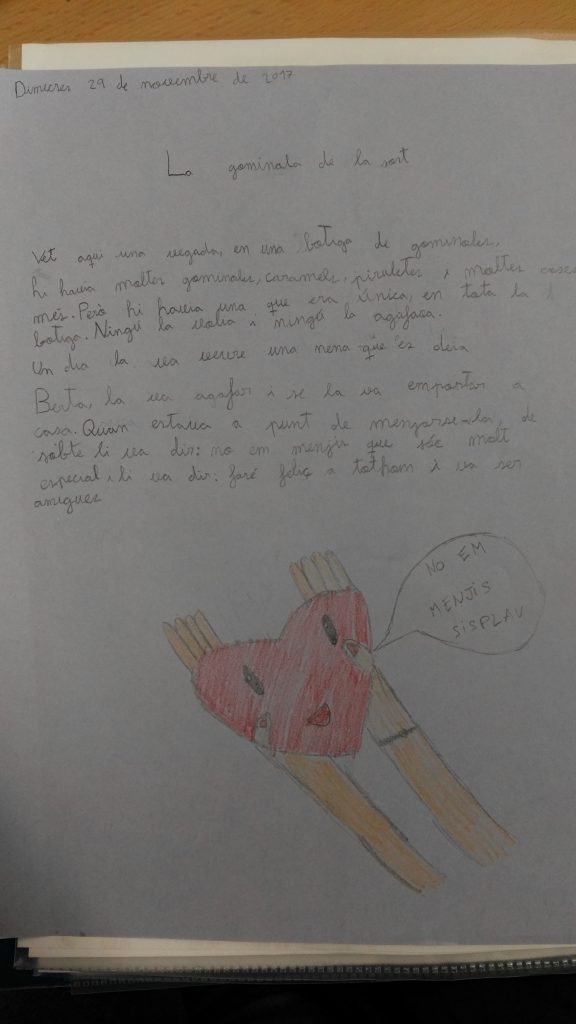 Dimecres 29 de novembre de 2017
La gominola de la sort
Vet aquí una vegada, en una botiga de gominoles,
hi havia moltes gominoles, caramels, piruletes i moltes coses
més. Però hi havia una que era única, en tota la
botiga. Ningú la volia i ningú la agafava.
Un dia la va veure una nena que es deia
Berta, la va agafar i se la va emportar a
casa. Quan estava a punt de menjarse-la, de
sobte li va dir: no em menjis que sóc molt
especial i li va dir: faré feliç a tothom i va ser
amigues
NO EM
MENJIS
SISPLAU